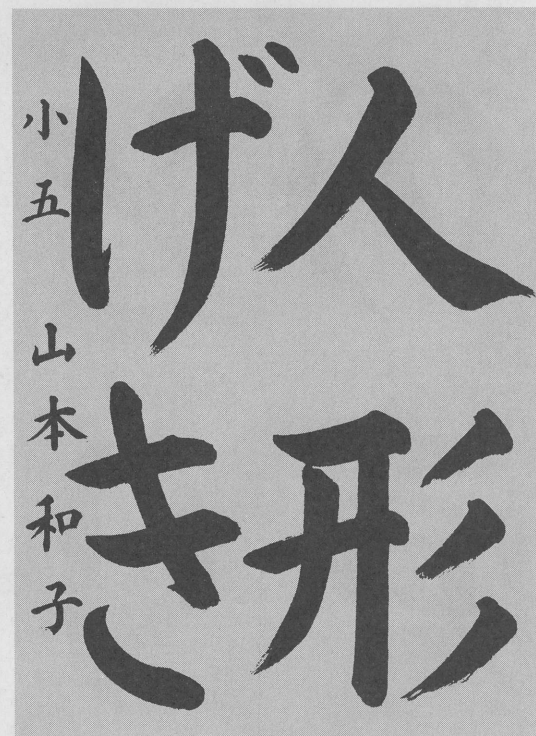 人形
げき
小五 山本和子